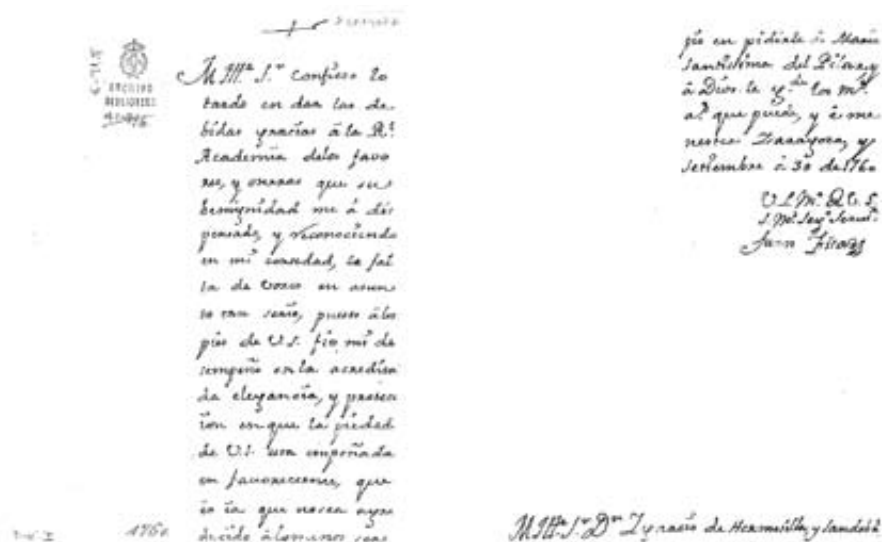 ARCHIVO
BIBLIOTECA
M Ill.e S.r confieso lo
tarde en dar las de
bidas gracias à la R.l
Academia delos favo
res, y onrras que su
benignidad me à dis
pensado, y reconociendo
en mi cortedad, la fal
ta de voces en asun
to tan serio, puesto àlos
pies de V.S. fio mi de
sempeño en la acredita
da elegancia, y protec
cion en que la piedad
de V.S. esta empeñada
en favorecerme, que
es la que nunca agra
decido àlomenos sera
1760
en pidirle à Maria
Santissima del Pilar, y
à Dios le g.de los m.s
a.s que puede, y è me
nester Zaragoza, y
Setiembre à 30 de 1760
V.S. M.e S.or
Juan Fita
M Ill.e S.r D.n Ygnacio de Hermosilla y Sandobal